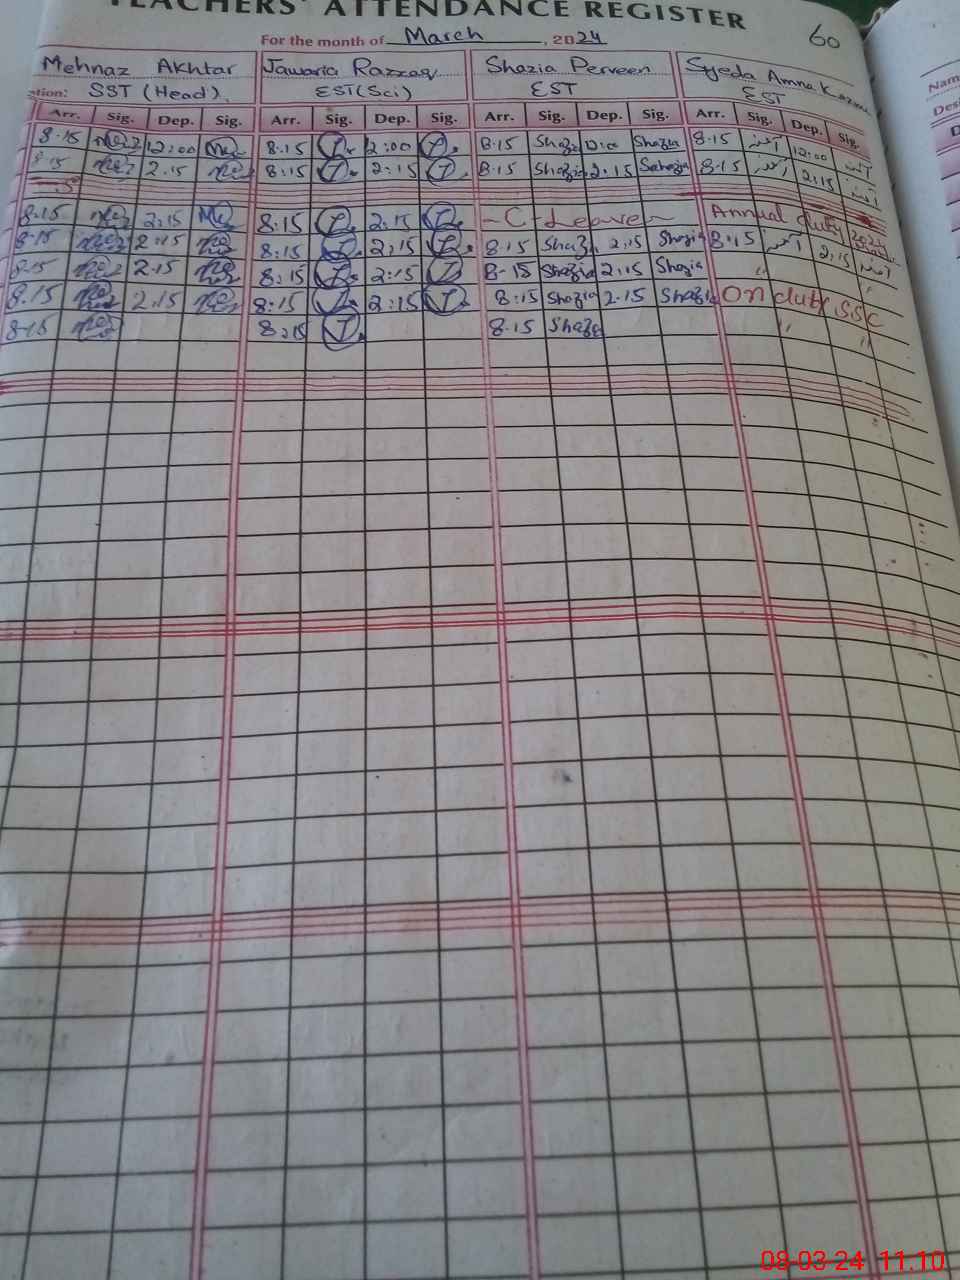 TEACHERS' ATTENDANCE REGISTER
60
For the month of March, 2024
Mehnaz Akhtar Jawaria Razzaq Shazia Perveen Syeda Amna Kazmi
tion: SST (Head). EST(Sci) EST EST
Arr. Sig. Dep. Sig. Arr. Sig. Dep. Sig. Arr. Sig. Dep. Sig. Arr. Sig. Dep. Sig.
8.15 12:00 8.15 12:00 8.15 Shazia Shazia 8.15 12:00
8.15 2.15 8:15 2:15 8.15 Shazia 2:15 8.15 2:15
8.15 2:15 8:15 2:15 - C-Leave - Annual duty
8.15 2:15 8:15 2:15 8:15 Shazia 2:15 Shazia 8:15 2:15
8.15 2.15 8:15 2:15 8-15 Shazia 2:15 Shazia "
8.15 2.15 8:15 2:15 8:15 Shazia 2.15 Shazia On duty SSC
8.15 8:15 8.15 Shazia "
Nam
Desi
D
08-03-24 11.10